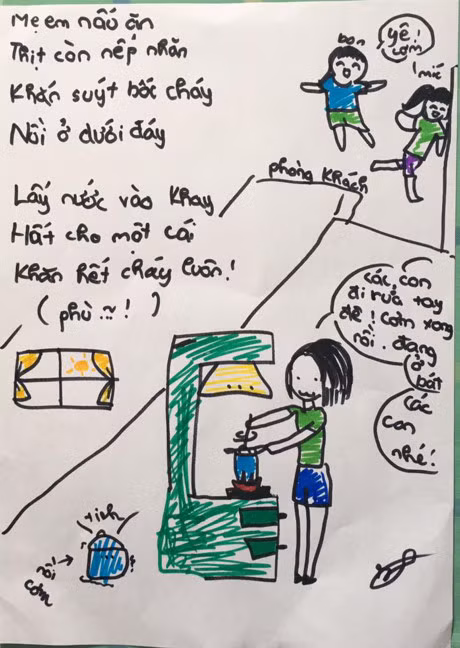 Mẹ em nấu ăn
Thịt còn nếp nhăn
Khăn suýt bốc cháy
Nồi ở dưới đáy
Lấy nước vào khay
Hất cho một cái
Khăn hết cháy luôn!
(phù ...~!)
bon
yê!
cơm
mic
phòng khách
các con
đi rửa tay
đê! Cơm xong
rồi. đang
ở
bát
các
con
nhé!
tinh
nồi
cơm